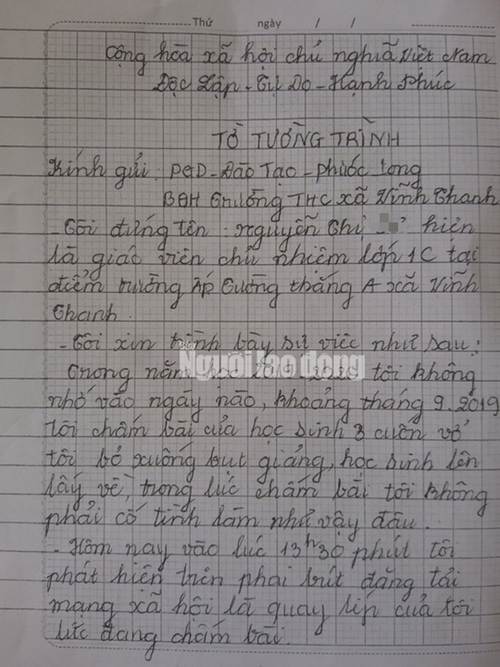 Thứ ngày / /
Cộng hòa xã hội chủ nghĩa Việt Nam
Độc Lập - Tự Do - Hạnh Phúc
TỜ TƯỜNG TRÌNH
Kính gửi: PGD - Đào Tạo - phước Long
BGH Trường THC xã Vĩnh Thanh
- Tôi đứng tên: Nguyễn Thị hiện
là giáo viên chủ nhiệm lớp 1C tại
điểm trường ấp Tường thắng A xã Vĩnh
Thanh.
- Tôi xin trình bày sự việc như sau:
Người lao động
Trong năm học 2019-2020 tôi không
nhớ vào ngày nào, khoảng tháng 9.2019
tôi chấm bài của học sinh 3 cuốn vở
tôi bỏ xuống bụt giảng, học sinh lên
lấy về, trong lúc chấm bài tôi không
phải cố tình làm như vậy đâu.
- Hôm nay vào lúc 13h30 phút tôi
phát hiện trên phai bút đăng tải
mạng xã hội là quay lip của tôi
lúc đang chấm bài.